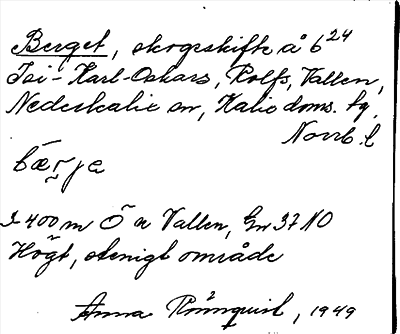 Berget, skogsskifte å 6²⁴
Isi-Karl-Oskars, Rolfs, Vallen,
Nederkalix sn, Kalix doms. tg.
Norrb. l
bærje
I 400 m Ö a Vallen, Gn 37 NO
Högt, stenigt område
Anna Rönnquist, 1949